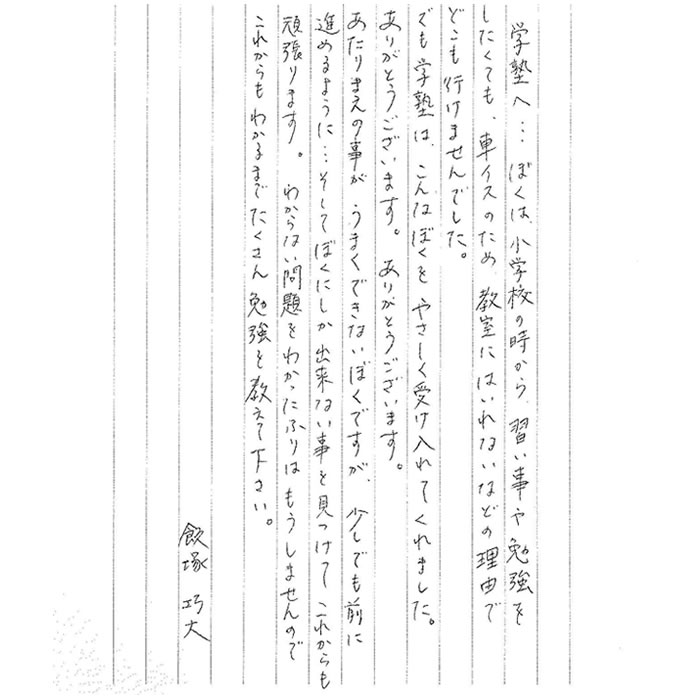 学塾へ… ぼくは、小学校の時から 習い事や勉強を
したくても、車イスのため、教室にはいれないなどの理由で
どこも行けませんでした。
でも学塾は、こんなぼくを やさしく受け入れてくれました。
ありがとうございます。 ありがとうございます。
あたりまえの事が うまくできないぼくですが、少しでも前に
進めるように…そしてぼくにしか出来ない事を見つけて これからも
頑張ります。 わからない問題をわかったふりはもうしませんので
これからも わかるまで たくさん 勉強を教えて下さい。
飯塚 巧大